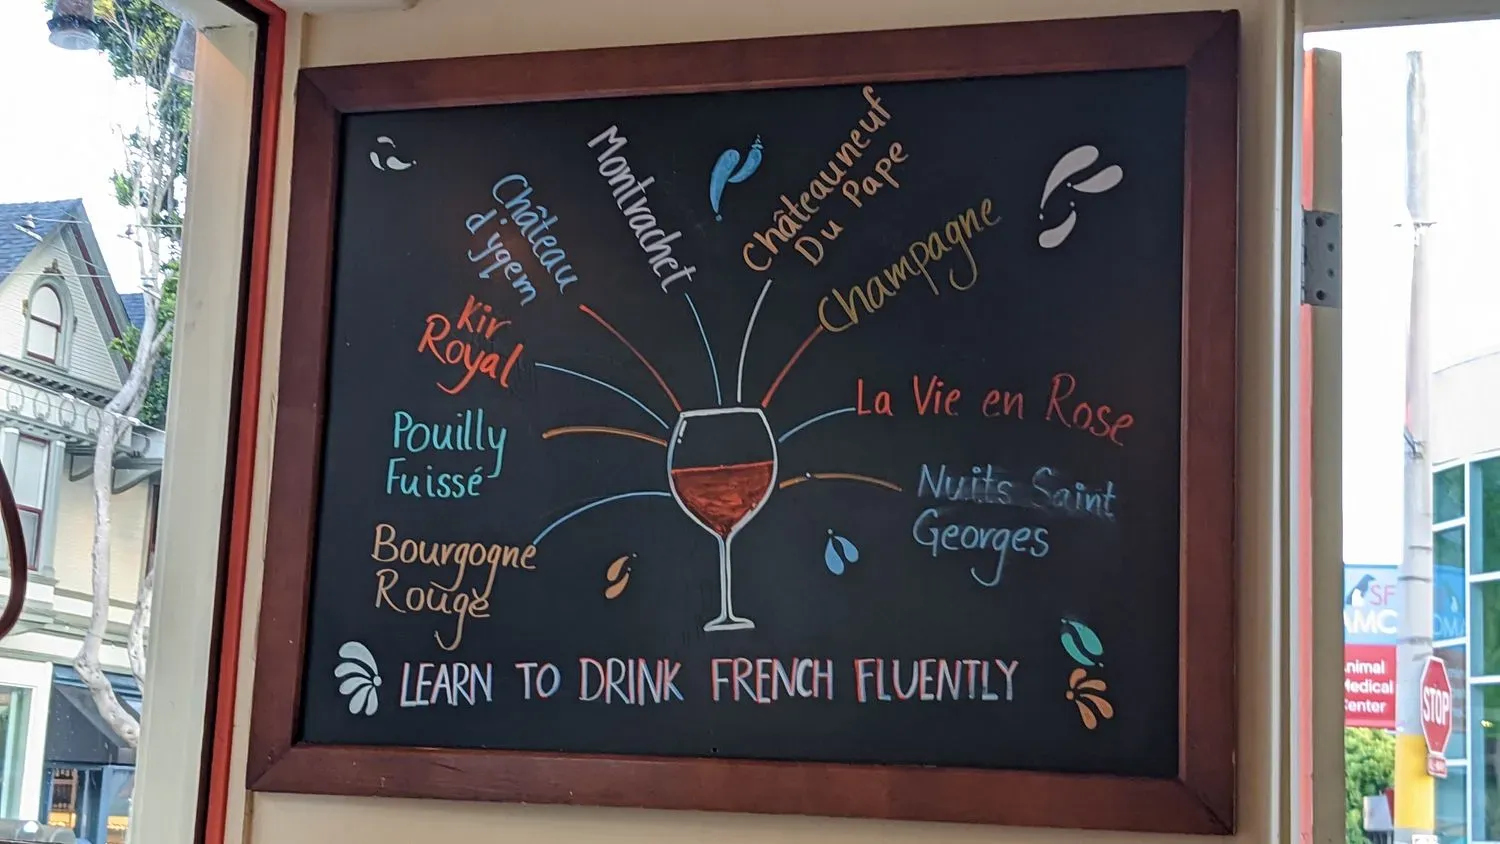 Montrachet
Château
d'yqem
Châteauneuf
Du Pape
Champagne
Kir
Royal
La Vie en Rose
Pouilly
Fuissé
Nuits Saint
Georges
Bourgogne
Rouge
LEARN TO DRINK FRENCH FLUENTLY
SF
Animal
Medical
Center
STOP